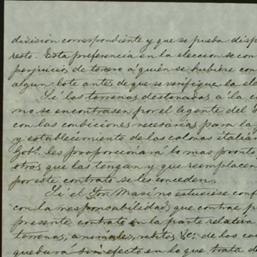 división correspondiente y que se pueda disp
resto. Esta preferencia en la eleccion se con
perjuicio de tercero a quien se hubiere con
algun lote antes de que se verifique la ele
Si las terrenos destonados a la
no se encontrasen por el agente del
con las condiciones necesarias para la
y establecimiento de las colonias italia
Gob.º les proporcionará lo mas pronto
otros que las tengan y que reemplacen
por este contrato se les conceden.
Si el Sor. Masino estuviese conf
con la responsabilidad que contrae p
presente contrato en la parte relativa
terrenos, animales, reditos, &c. de los co
quedará sin efecto en lo que trata d